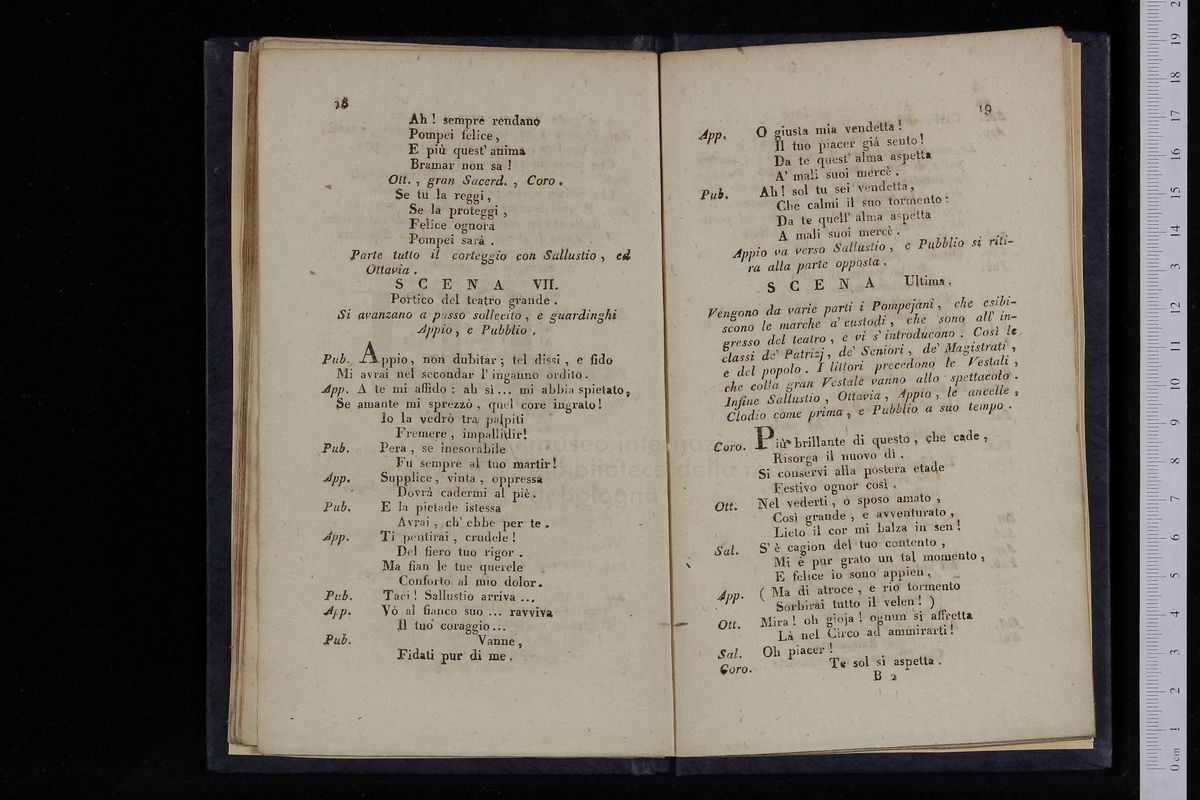 18
Ah ! sempre rendano
Pompei felice,
E più quest' anima
Bramar non sa !
Ott. , gran Sacerd. , Coro .
Se tu la reggi ,
Se la proteggi ,
Felice ognora
Pompei sarà .
Parte tutto il corteggio con Sallustio , ed
Ottavia .
S C E N A VII.
Portico del teatro grande .
Si avanzano a passo sollecito , e guardinghi
Appio , e Pubblio .
Pub. Appio, non dubitar ; tel dissi , e fido
Mi avrai nel secondar l' inganno ordito .
App. A te mi affido : ah sì ... mi abbia spietato,
Se amante mi sprezzò , quel core ingrato !
Io la vedrò tra palpiti
Fremere , impallidir!
Pub. Pera , se inesorabile
Fu sempre al tuo martir!
App. Supplice , vinta , oppressa
Dovrà cadermi al piè.
Pub. E la pietade istessa
Avrai , ch' ebbe per te .
App. Ti pentirai , crudele !
Del fiero tuo rigor .
Ma fian le tue querele
Conforto al mio dolor.
Pub. Taci ! Sallustio arriva ...
App. Vò al fianco suo ... ravviva
Il tuo coraggio...
Pub. Vanne ,
Fidati pur di me .
19
App. O giusta mia vendetta !
Il tuo piacer già sento !
Da te quest' alma aspetta
A' mali suoi mercè .
Pub. Ah ! sol tu sei vendetta ,
Che calmi il suo tormento :
Da te quell' alma aspetta
A mali suoi mercè .
Appio va verso Sallustio , e Pubblio si riti-
ra alla parte opposta .
S C E N A Ultima .
Vengono da varie parti i Pompejani , che esibi-
scono le marche a' custodi , che sono all' in-
gresso del teatro , e vi s' introducono . Così le
classi de' Patrizj , de' Seniori , de' Magistrati ,
e del popolo . I littori precedono le Vestali ,
che colla gran Vestale vanno allo spettacolo .
Infine Sallustio , Ottavia , Appio , le ancelle ,
Clodio come prima , e Pubblio a suo tempo .
Coro. Più brillante di questo , che cade ,
Risorga il nuovo dì .
Si conservi alla postera etade
Festivo ognor così .
Ott. Nel vederti , o sposo amato ,
Così grande , e avventurato ,
Lieto il cor mi balza in sen !
Sal. S' è cagion del tuo contento ,
Mi è pur grato un tal momento ,
E felice io sono appien ,
App. ( Ma di atroce , e rio tormento
Sorbirai tutto il velen ! )
Ott. Mira ! oh gioja ! ognun si affretta
Là nel Circo ad ammirarti !
Sal. Oh piacer !
Coro. Te sol si aspetta .
B 2
museo internazionale
biblioteca della
di bologna
0 cm 1 2 3 4 5 6 7 8 9 10 11 12 13 14 15 16 17 18 19